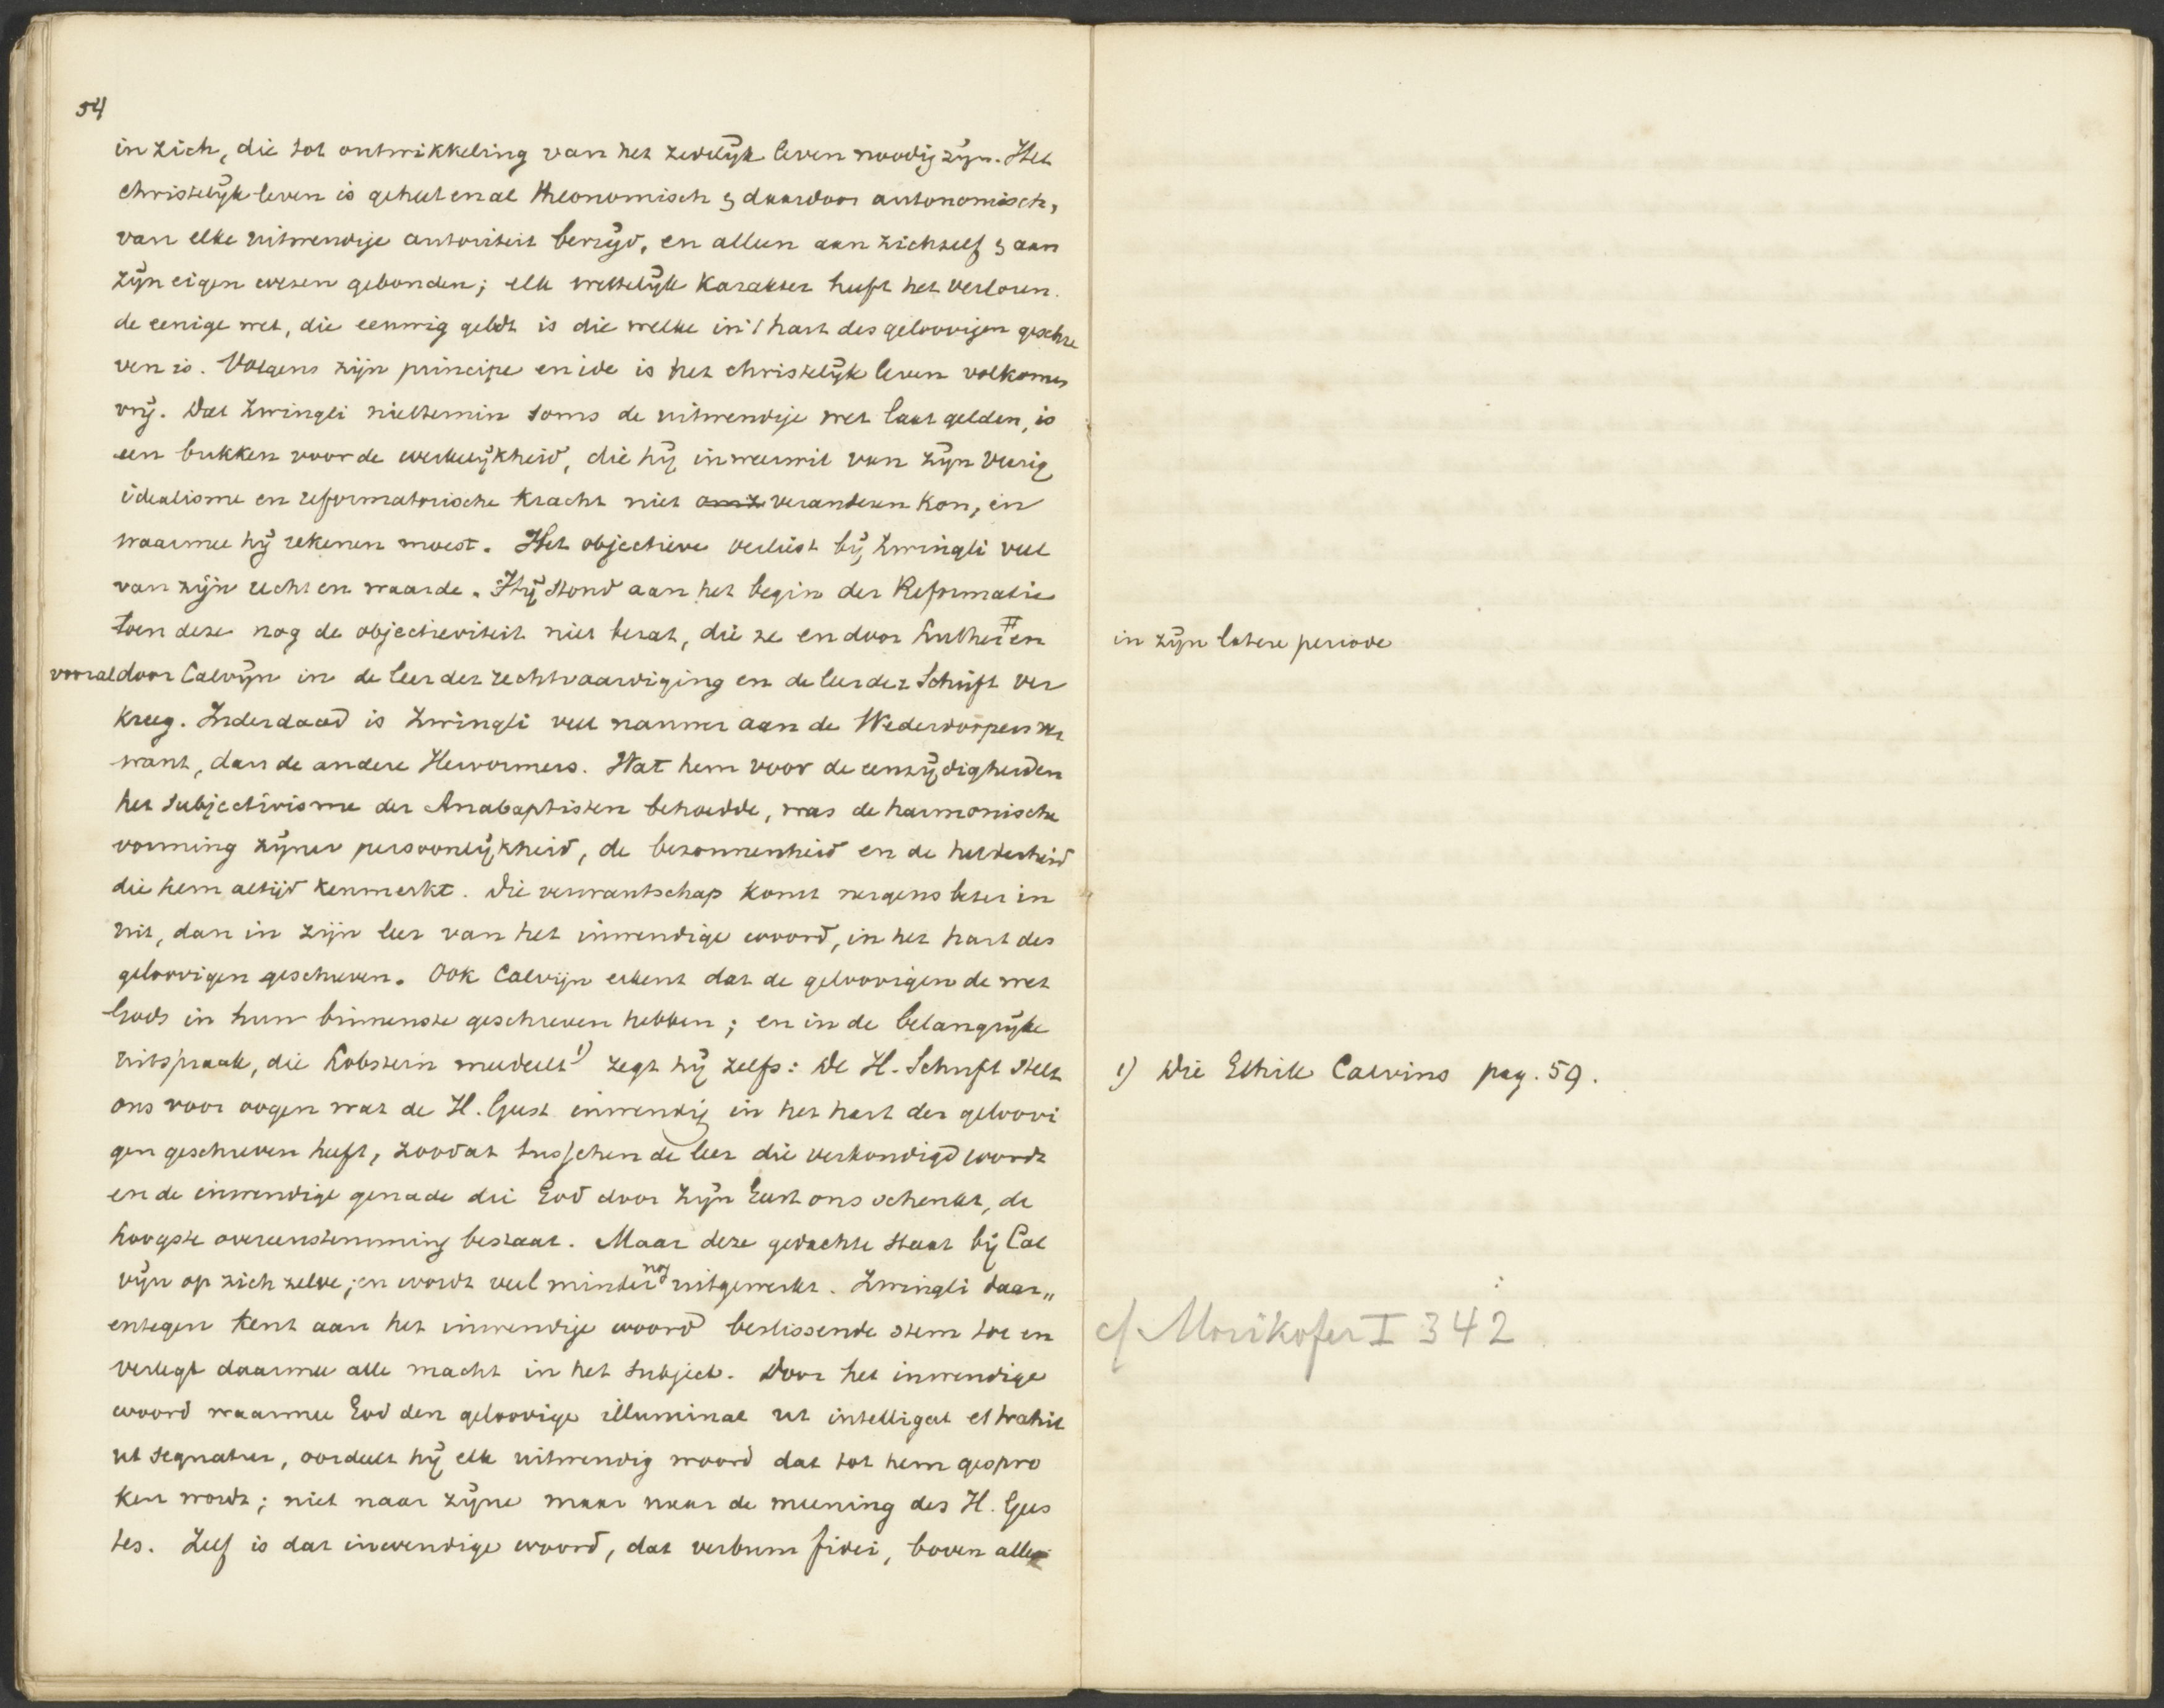 54
in zich, die tot ontwikkeling van het zedelijk leven noodig zijn. Het
christelijk leven is geheel en al theonomisch & daardoor autonomisch,
van elke uitwendige autoriteit bevrijd, en alleen aan zichzelf & aan
zijn eigen wezen gebonden; elk wettelijk karakter heeft het verloren.
de eenige wet, die eeuwig geldt is die welke in 't hart des geloovigen geschre
ven is. Volgens zijn principe en idee is het christelijk leven volkomen
vrij. Dat Zwingli niettemin soms de uitwendige wet laat gelden, is
een bukken voor de werkelijkheid, die hij in weerwil van zijn vurig
idealisme en reformatorische kracht niet veranderen kon, en
waarmee hij rekenen moest. Het objectieve verliest bij Zwingli veel
van zijn recht en waarde. Hij stond aan het begin der Reformatie
toen deze nog de objectieviteit niet bezat, die ze en door Luther # en
vooral door Calvijn in de leer der rechtvaardiging en de leer der Schrift ver
kreeg. Inderdaad is Zwingli veel nauwer aan de Wederdoopers ver
want, dan de andere Hervormers. Wat hem voor de eenzijdigheden
het subjectivisme der Anabaptisten behoedde, was de harmonische
vorming zijner persoonlijkheid, de bezonnenheid en de helderheid
die hem altijd kenmerkt. Die verwantschap komt nergens beter in
uit, dan in zijn leer van het inwendige woord, in het hart des
geloovigen geschreven. Ook Calvijn erkent dat de geloovigen de wet
Gods in hun binnenste geschreven hebben; en in de belangrijke
uitspraak, die Lobstein meedeelt 1) zegt hij zelfs: De H. Schrift stelt
ons voor oogen wat de H. Geest inwendig in het hart der geloovi
gen geschreven heeft, zoodat tusschen de leer die verkondigd wordt
en de inwendige genade die God door zijn Geest ons schenkt, de
hoogste overeenstemming bestaat. Maar deze gedachte staat bij Cal
vijn op zich zelve; en wordt veel minder nog uitgewerkt. Zwingli daar„
entegen kent aan het inwendige woord beslissende stem toe en
verlegt daarmee alle macht in het subject. Door het inwendige
woord waarmee God den geloovige illuminat ut intelligat et trahit
ut sequatur, oordeelt hij elk uitwendig woord dat tot hem gespro
ken wordt; niet naar zijne maar naar de meening des H. Gees
tes. Zelf is dat inwendige woord, dat verbum fidei, boven alle
in zijn latere periode
1) Die Ethik Calvins pag. 59.
cf Morikofer I 342